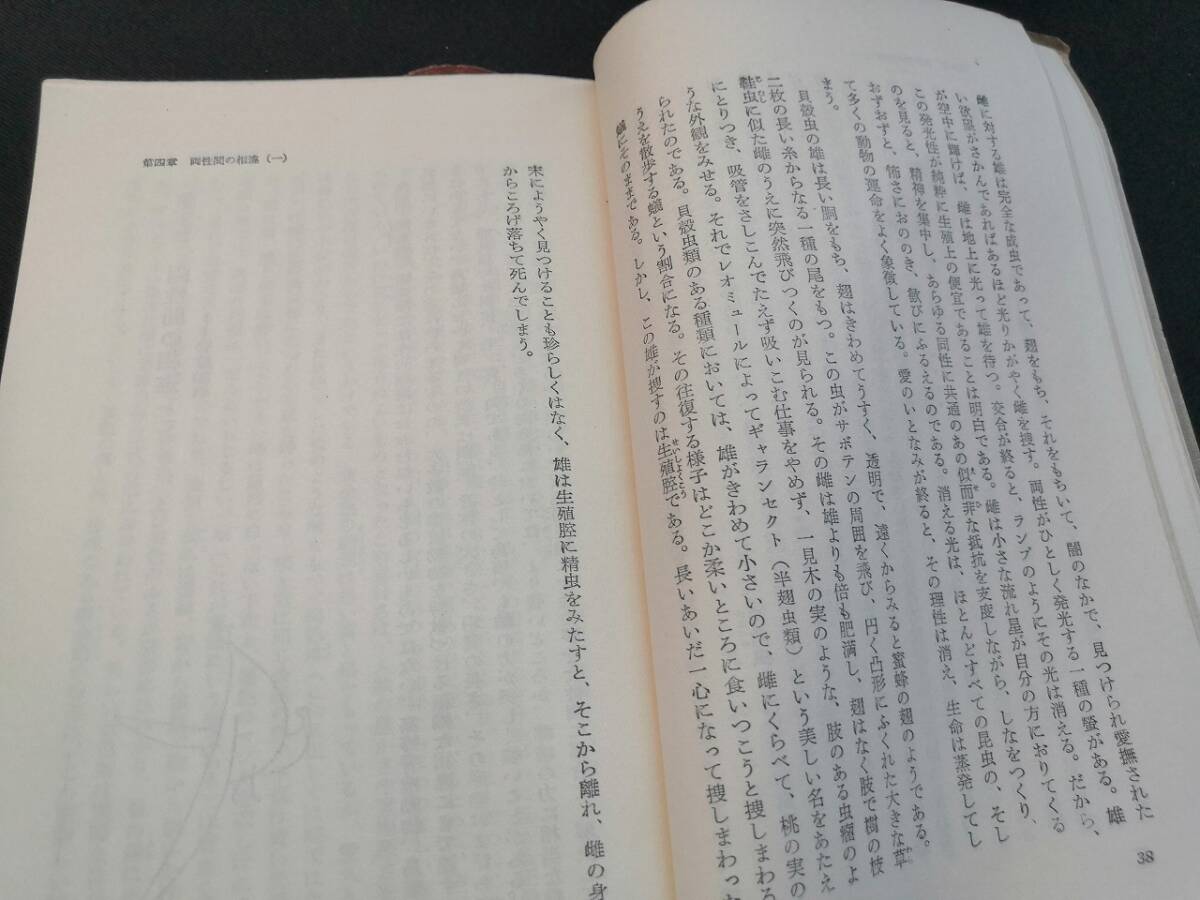 雌に対する雄は完全な成虫であって、翅をもち、それをもちいて、闇のなかで、見つけられ愛撫された
い欲望がさかんであればあるほど光りかがやく雌を捜す。両性がひとしく発光する一種の螢がある。雄
が空中に輝けば、雌は地上に光って雄を待つ。交合が終ると、ランプのようにその光は消える。だから、
この発光性が純粋に生殖上の便宜であることは明白である。雌は小さな流れ星が自分の方におりてくる
のを見ると、精神を集中し、あらゆる同性に共通のあの似而非な抵抗を支度しながら、しなをつくり、
おずおずと、怖さにおののき、歓びにふるえるのである。消える光は、ほとんどすべての昆虫の、そし
て多くの動物の運命をよく象徴している。愛のいとなみが終ると、その理性は消え、生命は蒸発してし
まう。
貝殻虫の雄は長い胴をもち、翅はきわめてうすく、透明で、遠くからみると蜜蜂の翅のようである。
二枚の長い糸からなる一種の尾をもつ。この虫がサボテンの周囲を飛び、円く凸形にふくれた大きな草
鞋虫に似た雌のうえに突然飛びつくのが見られる。その雌は雄よりも倍も肥満し、翅はなく肢で樹の枝
にとりつき、吸管をさしこんでたえず吸いこむ仕事をやめず、一見木の実のような、肢のある虫瘤のよ
うな外観をみせる。それでレオミュールによってギャランセクト（半翅虫類）という美しい名をあたえ
られたのである。貝殻虫類のある種類においては、雄がきわめて小さいので、雌にくらべて、桃の実の
うえを散歩する蟻という割合になる。その往復する様子はどこか柔いところに食いつこうと捜しまわる
蟻にそのままである。しかし、この雄が捜すのは生殖腔である。長いあいだ一心になって捜しまわった
38
末にようやく見つけることも珍らしくはなく、雄は生殖腔に精虫をみたすと、そこから離れ、雌の身
からころげ落ちて死んでしまう。
第四章　両性間の相違（一）